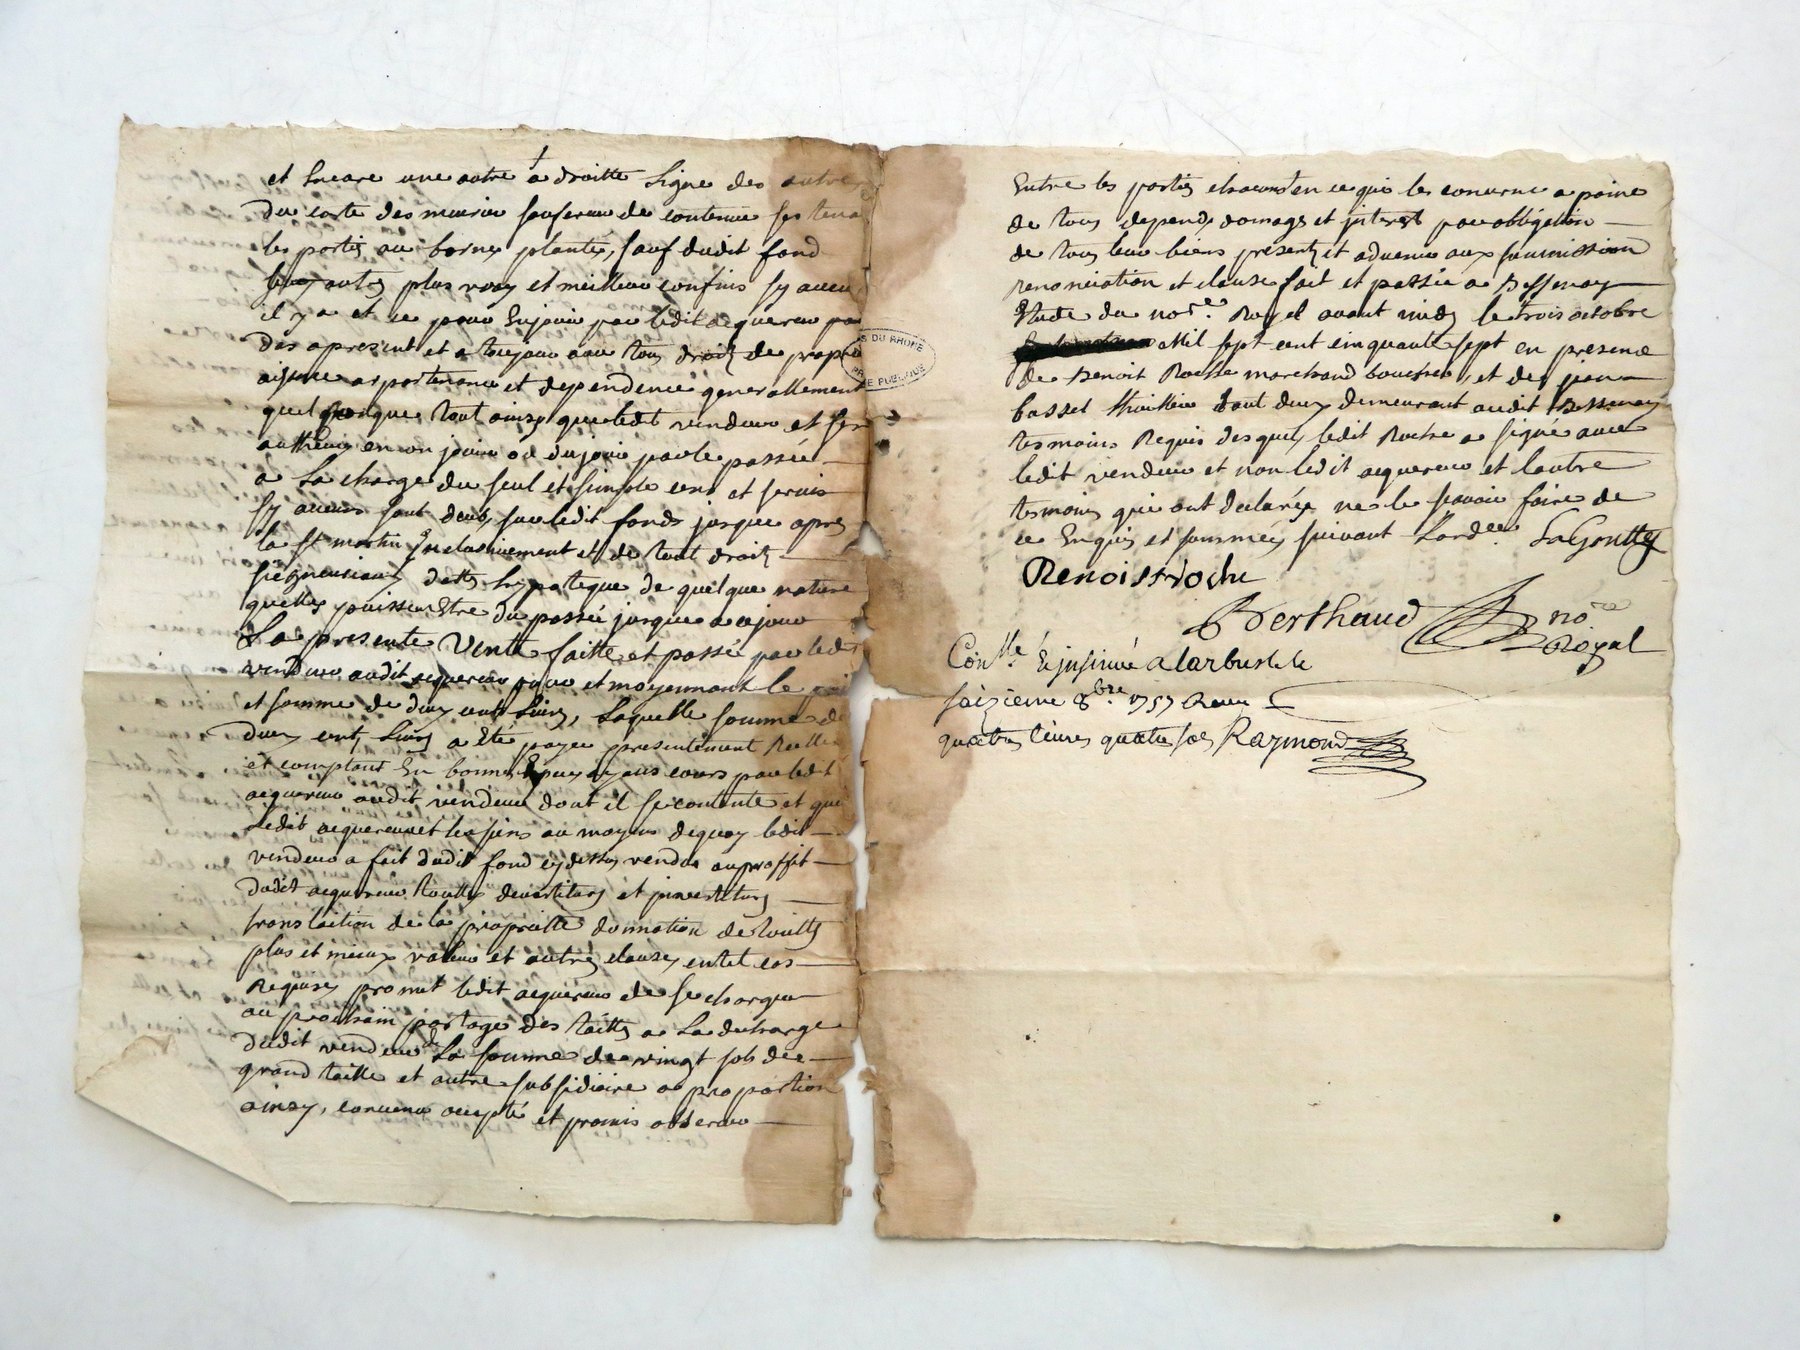 et encore une autre a droitte ligne des autre
du coste des murier sauf erreur de contenue ses tena
les portés au bornes plantés, sauf dudit fond
autres plus vray et meilleur confins sy aucun
il y a et ce pour En jouir par ledit acquereur par
des apresent et a toujour avec tous droits de propri
apartenance et dependence generallement
quelquonque tout ainsy que ledit vendeur et ses
autheurs en on jouire ou du jouir par le passée
a La charge du seul et simple cens et servis
sy aucuns sont deubs sur ledit fonds jusque apres
la St martin Inclusivement et de tout droits
seigneuriaux dettes hypoteque de quelque nature
quelles puissent Etre du passée jusque a ce jour
La presente Vente faitte et passé par ledit
vendeur audit acquereur pour et moyennant le prix
et somme de deux cents Livres, Laquelle somme de
deux cents Livres a Eté payee presentement Reelle
et comptant En bonnes Especes ayans cours par ledit
acquereur audit vendeur dont il se contente et quitte
Ledit acquereur et les siens au moyens de quoy ledit
vendeur a fait dudit fond cy dessus vendus au proffit
dudit acquereur touttes devestitures et investitures
translation de la propriette donnation de touttes
plus et mieux valeur et autres clauses en tel cas
Requises promet ledit acquereur de se charger
au prochain partage des tailles a La decharge
dudit vendeur de La somme de vingt sols de
grand taille et autre subsidiaire a proportion
ainsy, convenu accepté et promis observer
ARCHIVES DU RHONE
PROPRIETE PUBLIQUE
Entre les parties chacun en ce qui les concerne a paine
de tous depends domages et interest par obligation
de tous leur biens presents et advenir aux soumission
renonciation et clause fait et passée a Bessenay
Etude du nore. Royal avant midy le trois octobre
Mil sept cent cinquante sept en presence
de Benoit Roche marchand boucher, et de jean
basset tout deux demeurant audit Bessenay
tesmoins Requis desquels ledit Roche a signé avec
ledit vendeur et non ledit acquereur et l'autre
tesmoins qui ont declarés ne le savoir faire de
ce Enquis et sommés suivant L'ordce LaGoutte
Benoist Roche
Berthaud nore
Royal
Conllé & insinué a larbresle le
saizieme 8bre. 1757 Receu
quatres livres quatre sols Raymond